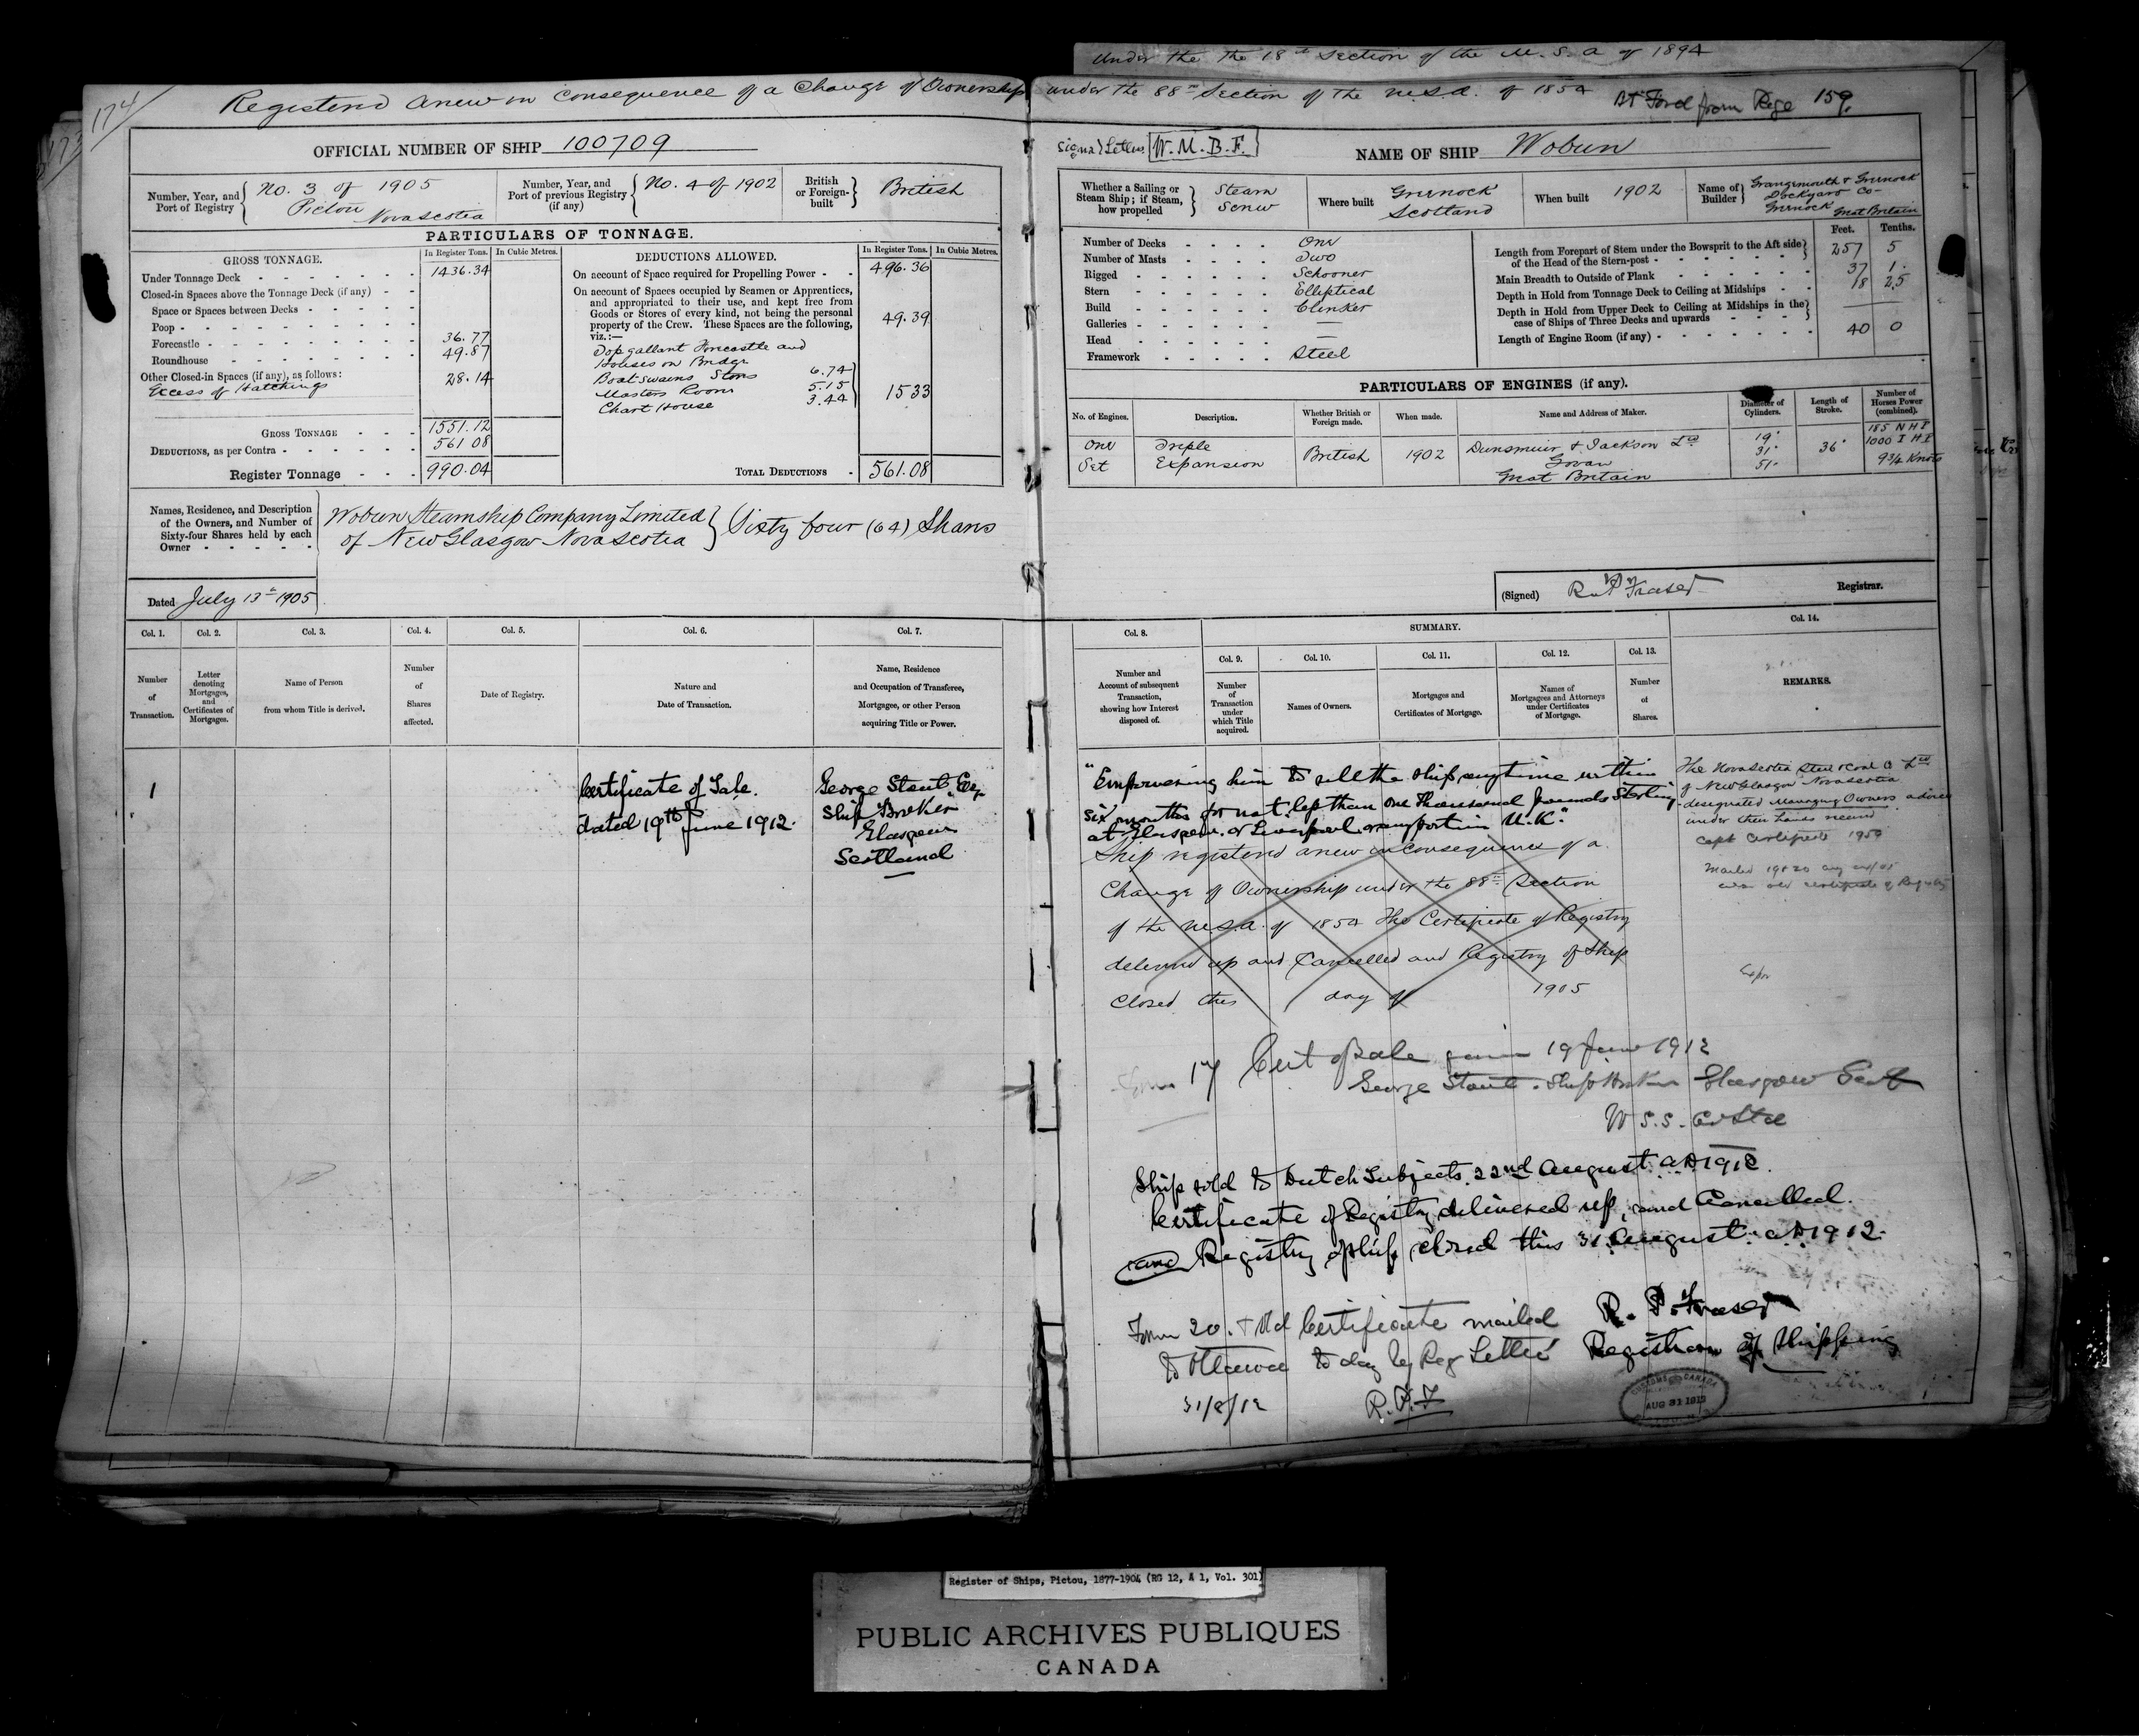 Under the the 18th Section of the M. S. A of 1894
174
Registered anew in consequence of a Change of Ownership under the 88th Section of the M.S.A. of 1854
Bt Ford from Page 159.
OFFICIAL NUMBER OF SHIP 100709
Signal Letters W. M. B. F.
NAME OF SHIP Wobun
Number, Year, and Port of Registry No. 3 of 1905 Pictou Nova Scotia
Number, Year, and Port of previous Registry (if any) No. 4 of 1902
British or Foreign-built British
Whether a Sailing or Steam Ship; if Steam, how propelled Steam Screw
Where built Greenock Scotland
When built 1902
Name of Builder Grangemouth & Greenock Dockyard Co- Greenock Great Britain
PARTICULARS OF TONNAGE.
GROSS TONNAGE. In Register Tons. In Cubic Metres.
Under Tonnage Deck 1436.34
Closed-in Spaces above the Tonnage Deck (if any)
Space or Spaces between Decks
Poop
Forecastle 36.77
Roundhouse 49.87
Other Closed-in Spaces (if any), as follows:
Excess of Hatchings 28.14
GROSS TONNAGE 1551.12
DEDUCTIONS, as per Contra 561 08
Register Tonnage 990.04
DEDUCTIONS ALLOWED. In Register Tons. In Cubic Metres.
On account of Space required for Propelling Power 496.36
On account of Spaces occupied by Seamen or Apprentices, and appropriated to their use, and kept free from Goods or Stores of every kind, not being the personal property of the Crew. These Spaces are the following, viz.:— 49.39
Topgallant Forecastle and
Houses on Bridge
Boatswains Stores 6.74
Masters Room 5.15
Chart House 3.44
1533
TOTAL DEDUCTIONS 561.08
Number of Decks One
Number of Masts Two
Rigged Schooner
Stern Elliptical
Build Clenker
Galleries —
Head —
Framework Steel
Feet. Tenths.
Length from Forepart of Stem under the Bowsprit to the Aft side of the Head of the Stern-post 257 5
Main Breadth to Outside of Plank 37 1
Depth in Hold from Tonnage Deck to Ceiling at Midships 18 25
Depth in Hold from Upper Deck to Ceiling at Midships in the case of Ships of Three Decks and upwards
Length of Engine Room (if any) 40 0
PARTICULARS OF ENGINES (if any).
No. of Engines. Description. Whether British or Foreign made. When made. Name and Address of Maker. Diameter of Cylinders. Length of Stroke. Number of Horses Power (combined).
One Set Triple Expansion British 1902 Dunsmuir & Jackson Ld Govan Great Britain 19" 31" 51" 36" 185 N H P 1000 I H P 9¾ Knots
Names, Residence, and Description of the Owners, and Number of Sixty-four Shares held by each Owner
Wobun Steamship Company Limited
of New Glasgow Nova Scotia
Sixty four (64) Shares
Dated July 13th 1905
(Signed) R P Fraser Registrar.
Col. 1. Col. 2. Col. 3. Col. 4. Col. 5. Col. 6. Col. 7. Col. 8. SUMMARY. Col. 14.
Col. 9. Col. 10. Col. 11. Col. 12. Col. 13.
Number of Transaction.
Letter denoting Mortgages, and Certificates of Mortgages.
Name of Person from whom Title is derived.
Number of Shares affected.
Date of Registry.
Nature and Date of Transaction.
Name, Residence and Occupation of Transferee, Mortgagee, or other Person acquiring Title or Power.
Number and Account of subsequent Transaction, showing how Interest disposed of.
Number of Transaction under which Title acquired.
Names of Owners.
Mortgages and Certificates of Mortgage.
Names of Mortgagees and Attorneys under Certificates of Mortgage.
Number of Shares.
REMARKS.
1
Certificate of Sale.
dated 19th June 1912.
George Stout Esq
Ship Broker
Glasgow
Scotland
"Empowering him to sell the ship anytime within
six months for not less than one thousand pounds Sterling
at Glasgow or Liverpool or any port in U.K."
Ship registered anew in consequence of a
Change of Ownership under the 88th Section
of the M.S.A. of 1854 The Certificate of Registry
delivered up and Cancelled and Registry of Ship
Closed this day of 1905
The Nova Scotia Steel & Coal Co Ltd
of New Glasgow Nova Scotia
designated Managing Owners advice
under their hands received
Copt Certificate 1950
17 Cert of Sale given 19 June 1912
George Stout. Ship Broker Glasgow Scot
W S.S. Co Ltd
Ship sold to Dutch Subjects 22nd August AD 1912.
Certificate of Registry delivered up, and Cancelled.
and Registry of ship closed this 31 August AD 1912.
R. P. Fraser
Registrar of Shipping
Form 20. & Old Certificate mailed
to Ottawa to day by Reg Letter
31/8/12 R.P.F
CUSTOMS CANADA
AUG 31 1912
Register of Ships, Pictou, 1877-1904 (RG 12, A 1, Vol. 301)
PUBLIC ARCHIVES PUBLIQUES
CANADA